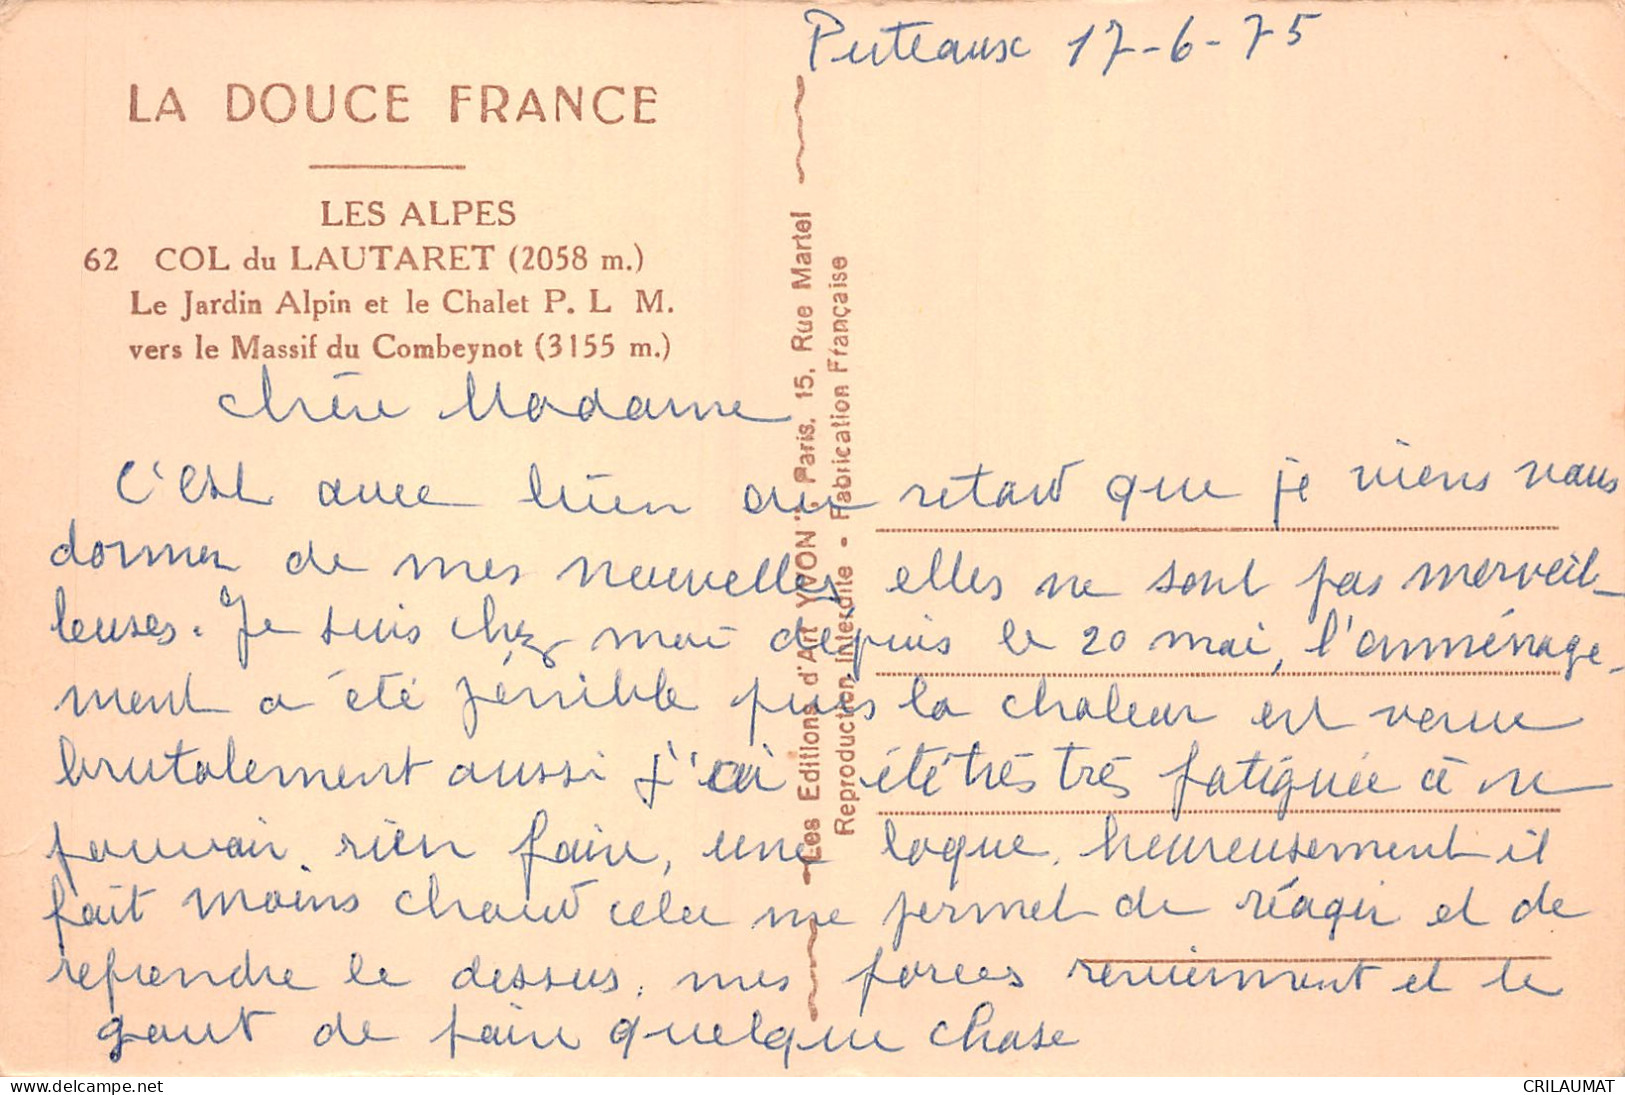 Puteaux 17-6-75
LA DOUCE FRANCE
LES ALPES
62 COL du LAUTARET (2058 m.)
Le Jardin Alpin et le Chalet P. L M.
vers le Massif du Combeynot (3155 m.)
Les Editions d'Art YVON", Paris. 15, Rue Martel
Reproduction Interdite - Fabrication Française
Chère Madame
C'est avec bien du retard que je viens vous
donner de mes nouvelles, elles ne sont pas merveil-
leuses. Je suis chez moi depuis le 20 mai, l'amménage-
ment a été pénible puis la chaleur est venue
brutalement aussi j'ai été très très fatiguée à ne
pouvoir rien faire, une loque, heureusement il
fait moins chaud cela me permet de réagir et de
reprendre le dessus, mes forces reviennent et le
gout de faire quelque chose
delcampe.net
CRILAUMAT